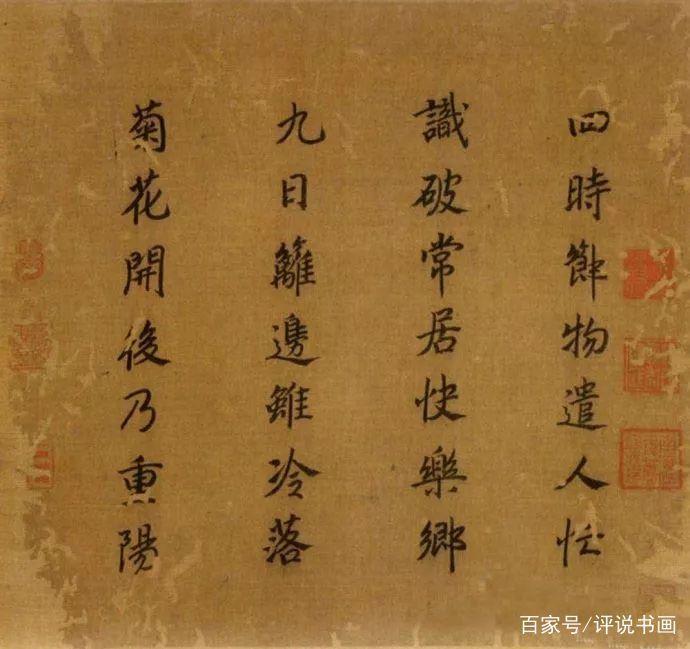 四時節物遣人忙
識破常居快樂鄉
九日籬邊雖冷落
菊花開後乃重陽
百家号/评说书画